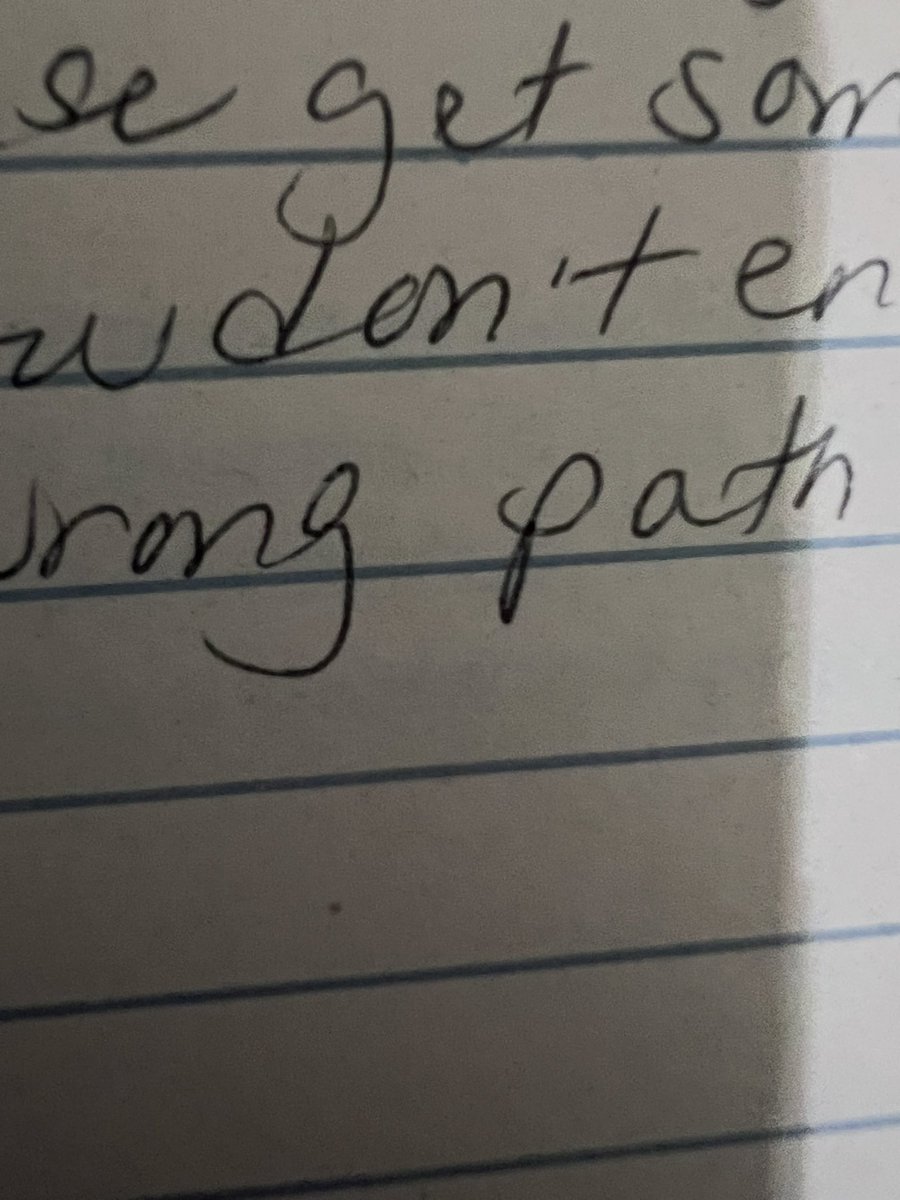 se get som
u don't en
wrong path